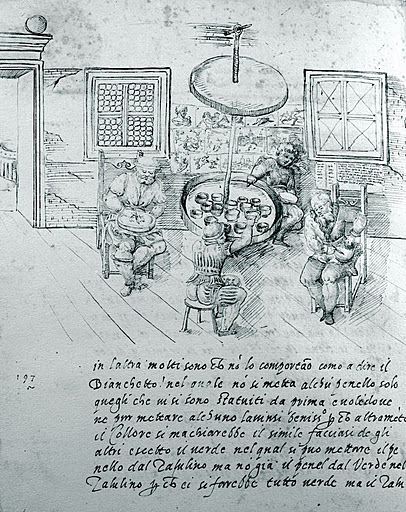 in l altra molti sono ch nõ lo comportão come a dire il
Bianchetto nel quale nõ si metta altri penello solo
quegli che vi si sono statuiti da prima e voledove
ne pur mettere alchuno lavinsi beniss.o p ch altramẽte
197
il Collore si machiarebbe il simile facciasi de gli
altri eccetto il verde nel qual si puo mettere il pe
nello dal Zalulino ma no già il penel dal Verde nel
Zalulino p ch ei si farebbe tutto verde ma il Zalu